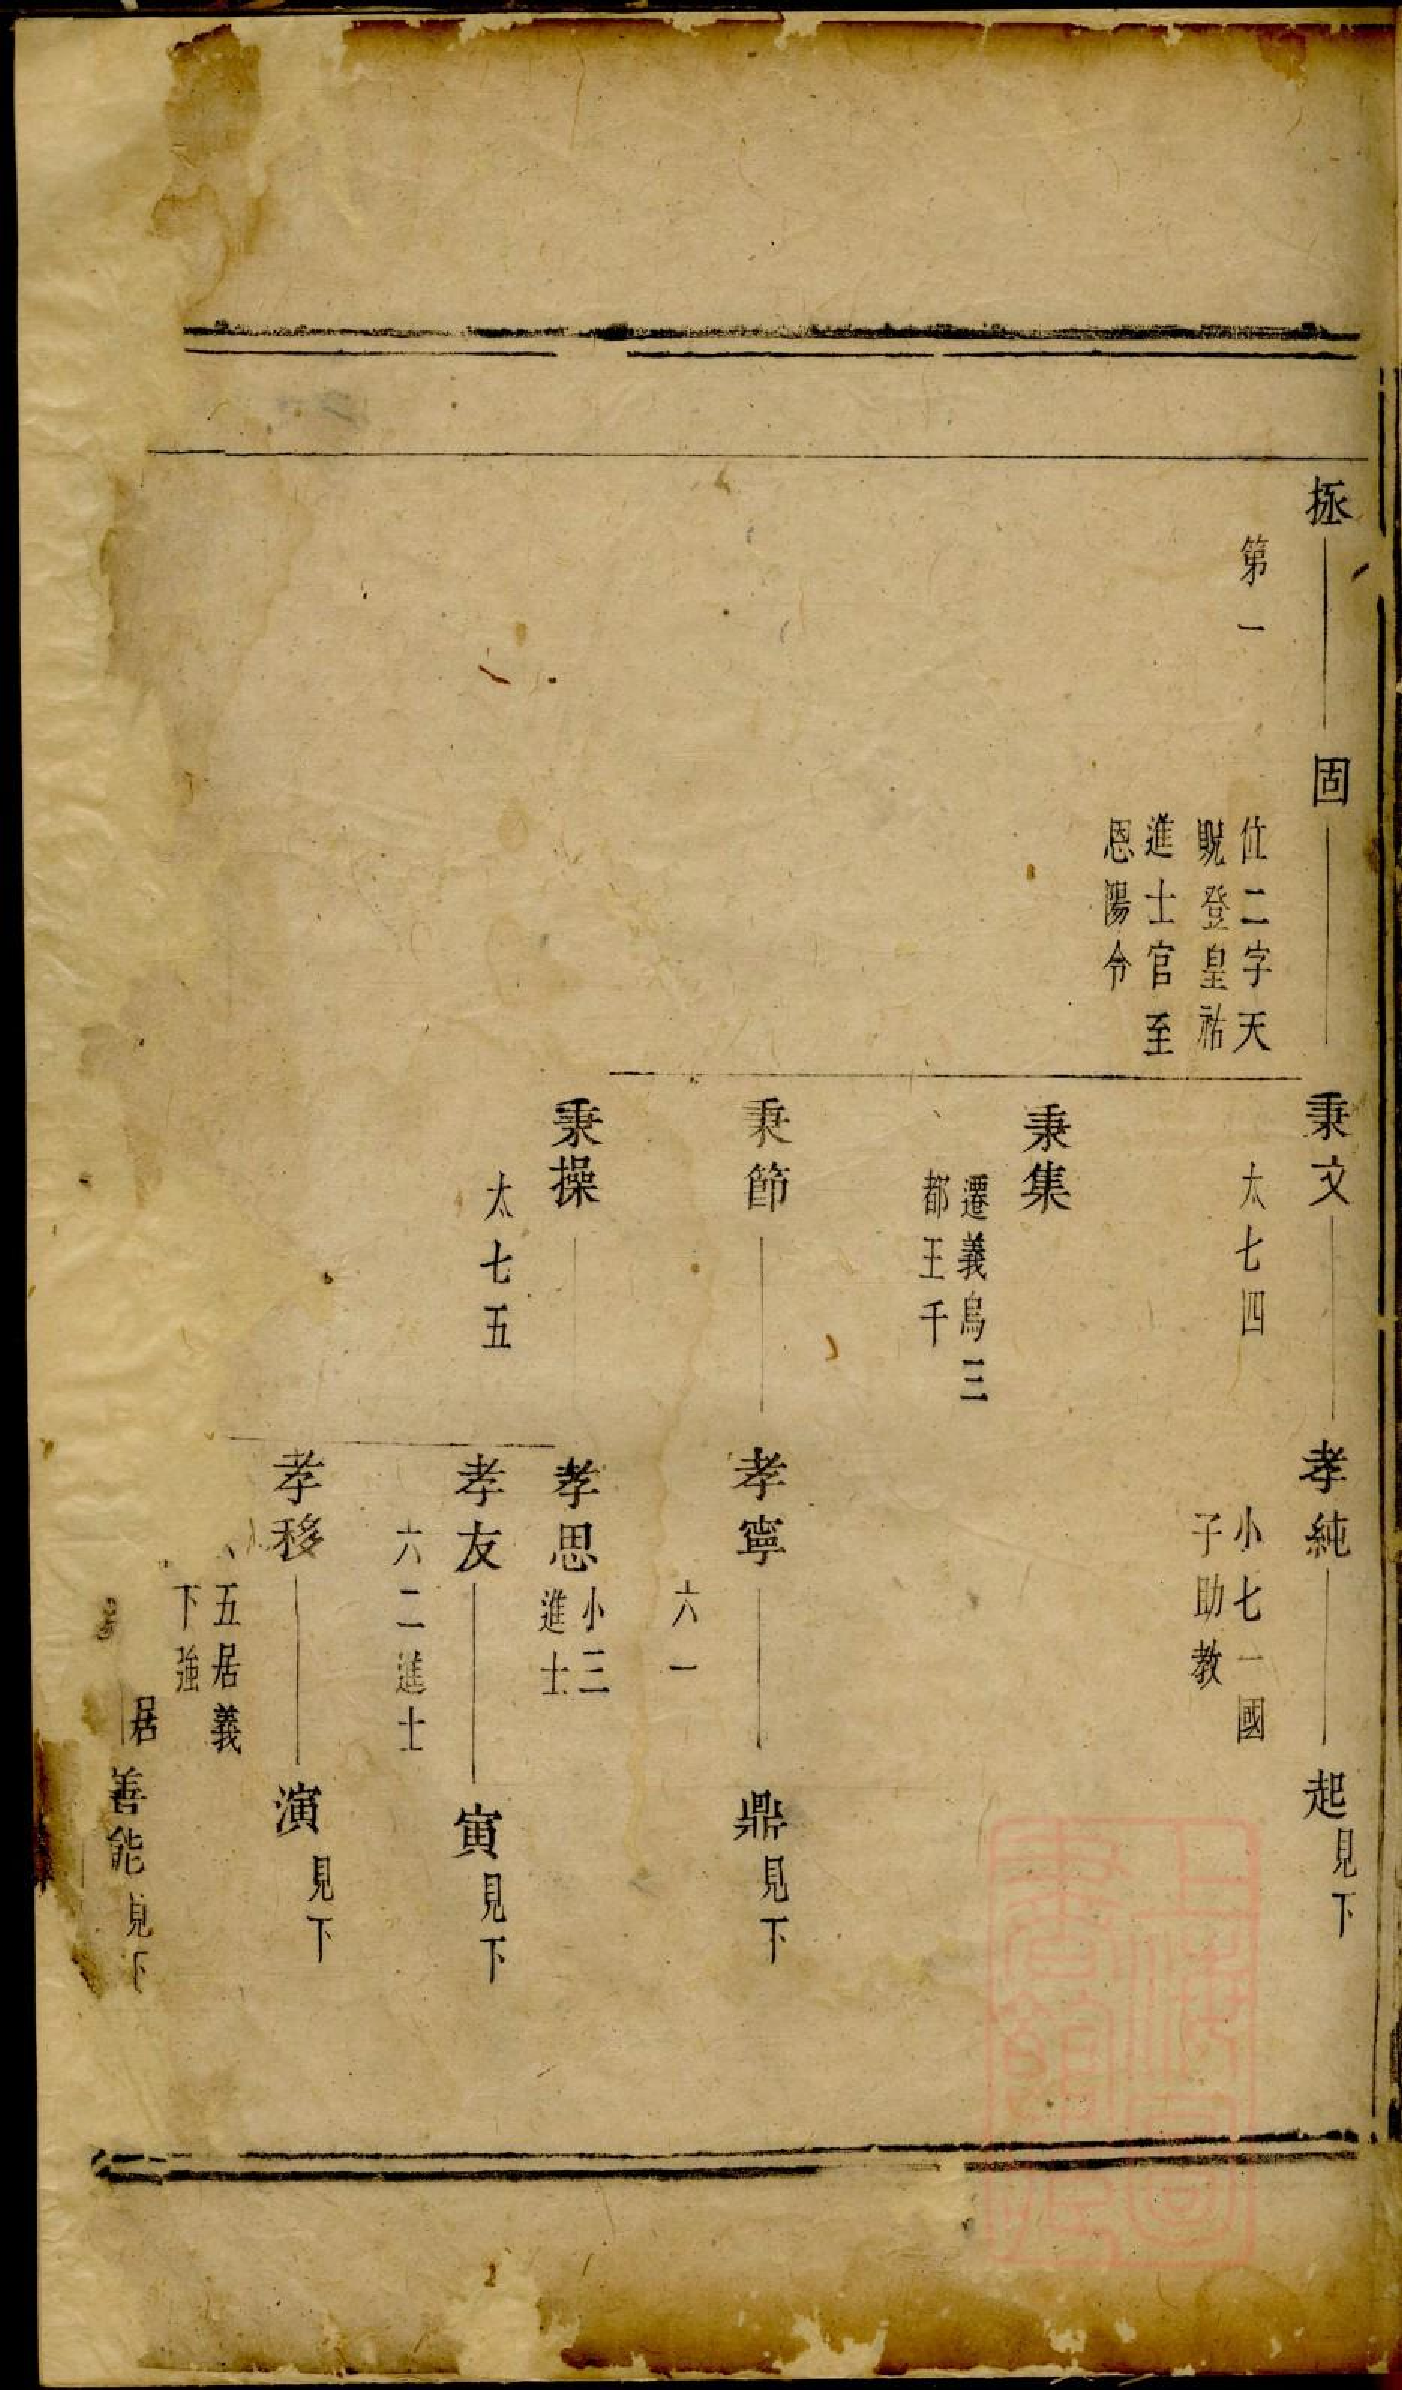 拯
第一
固
位二字天
貺登皇祐
進士官至
恩陽令
秉文
太七四
孝純
小七一國
子助教
起見下
秉集
遷義烏三
都王千
秉節
孝寧
六一
鼎見下
秉操
太七五
孝思
小三
進士
孝友
六二進士
寅見下
孝移
五居義
下強
演見下
居
善能見下
上海圖
書館藏